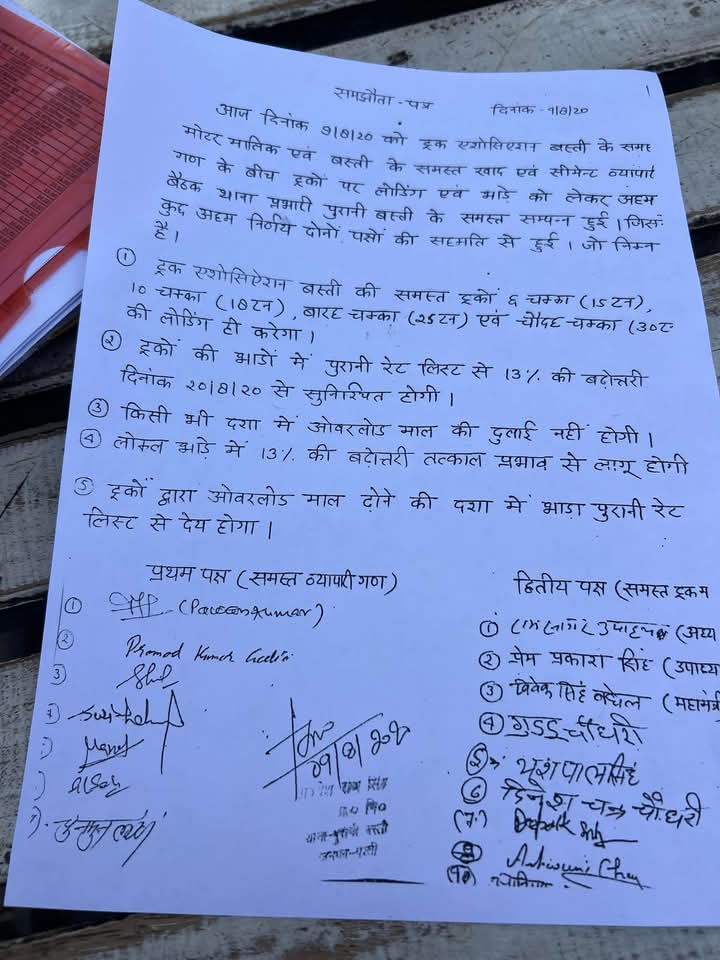 1
समझौता-पत्र दिनांक - 9/8/20
आज दिनांक 9/8/20 को ट्रक एशोसिएशन बस्ती के सम
मोटर मालिक एवं बस्ती के समस्त खाद एवं सीमेन्ट व्यापारी
गण के बीच ट्रकों पर लोडिंग एवं भाड़े को लेकर अहम
बैठक थाना प्रभारी पुरानी बस्ती के समस्त सम्पन हुई । जिस
कुछ अहम निर्णय दोनों पक्षों की सहमति से हुई । जो निम्न
है ।
① ट्रक एशोसिऐशन बस्ती की समस्त ट्रकों 6 चक्का (15टन),
10 चक्का (18टन), बारह चक्का (25टन) एवं चौदह चक्का (30ट
की लोडिंग ही करेगा ।
② ट्रकों की भाड़ों में पुरानी रेट लिस्ट से 13% की बढ़ोत्तरी
दिनांक 20/8/20 से सुनिश्चित होगी ।
③ किसी भी दशा में ओवरलोड माल की ढुलाई नहीं होगी ।
④ लोकल भाड़े में 13% की बढ़ोत्तरी तत्काल प्रभाव से लागू होगी
⑤ ट्रकों द्वारा ओवरलोड माल ढोने की दशा में भाड़ा पुरानी रेट
लिस्ट से देय होगा ।
प्रथम पक्ष (समस्त व्यापारी गण)
① (Paveen Kumar)
② Pramod Kumar
③
द्वितीय पक्ष (समस्त ट्रक म
① उपाध्याय (अध्य
② प्रेम प्रकाश सिंह (उपाध्य
③ विवेक सिंह बघेल (महामंत्री
④ गुड्डू चौधरी
⑤ यशपाल सिंह
⑥ दिनेश चन्द्र चौधरी
Deepak
09/8/20
सिंह
थाना-पुरानी बस्ती
जनपद-बस्ती